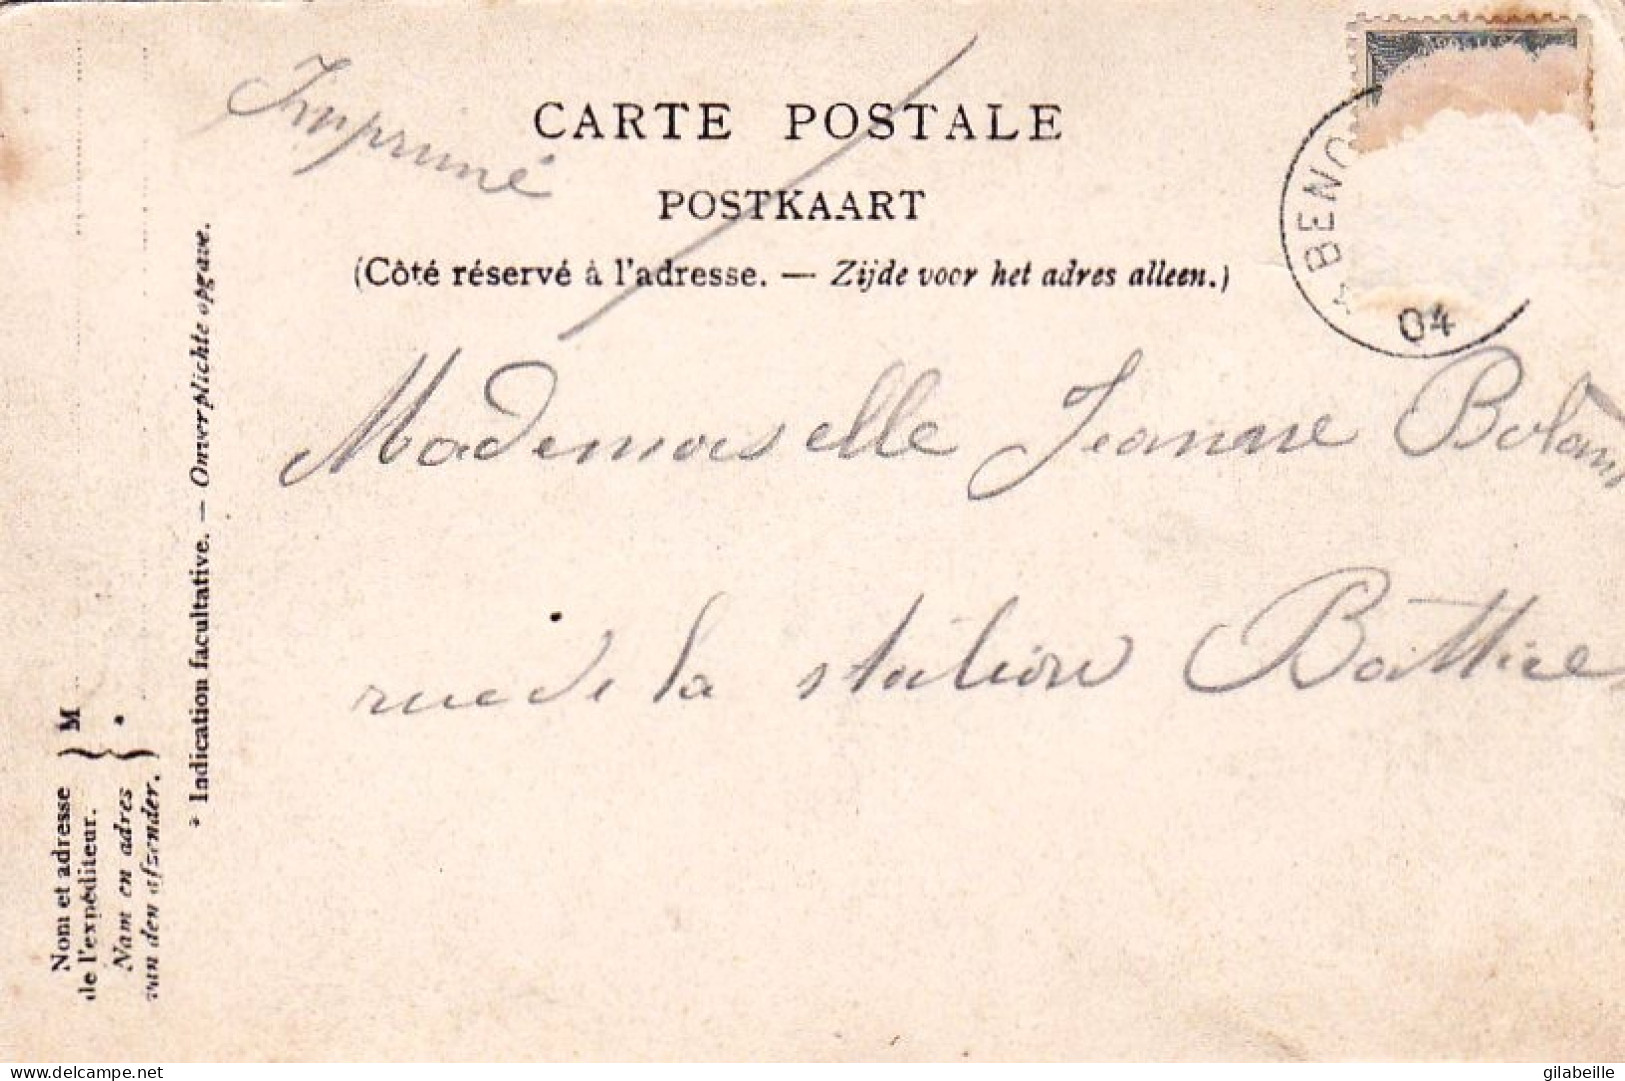 Imprimé
CARTE POSTALE
POSTKAART
(Côté réservé à l'adresse. — Zijde voor het adres alleen.)
ABENC
04
Mademoiselle Jeanne
rue de la station Battice
Nom et adresse
de l'expéditeur.
M
Nam en adres
van den afzender.
*
* Indication facultative. — Onverplichte opgave.
www.delcampe.net
gilabeille